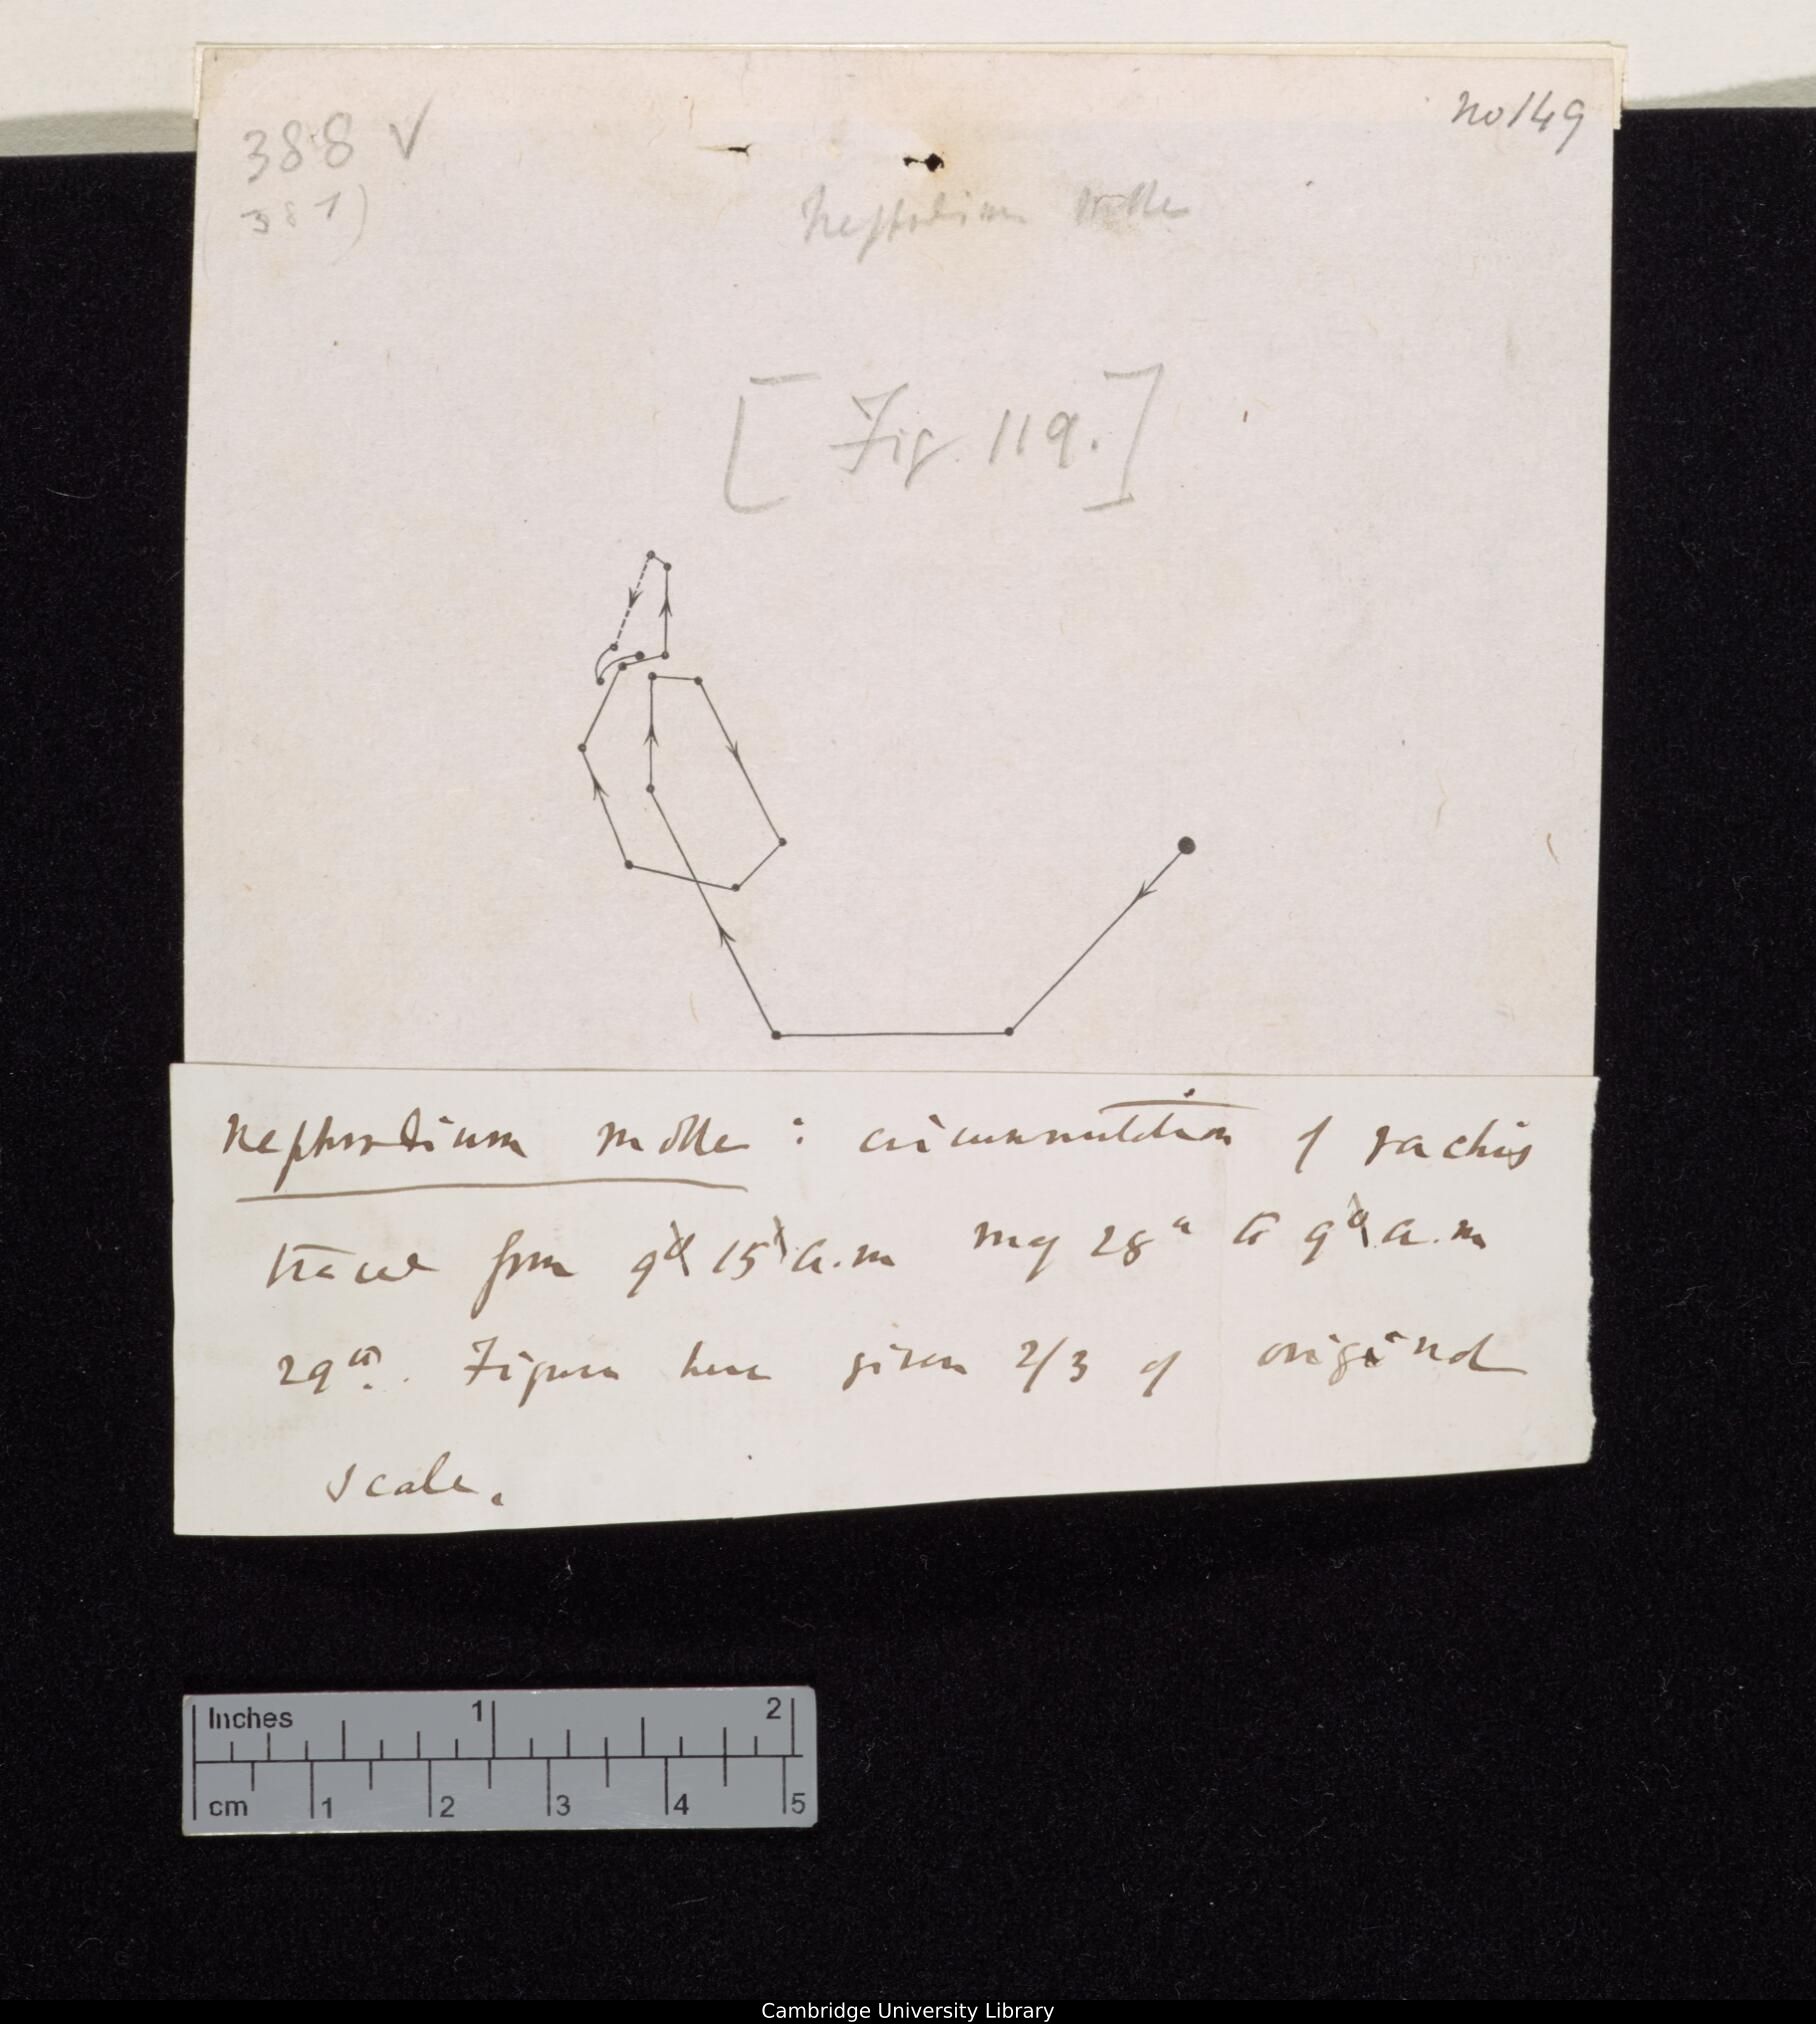 388 ✓
no 149
(387)
Nephrodium molle
[Fig. 119.]
Nephrodium molle: circumnutation of rachis
traced from 9 15 a.m May 28th to 9 a.m
29th. Figure here given 2/3 of original
scale.
Inches 1 2
cm 1 2 3 4 5
Cambridge University Library